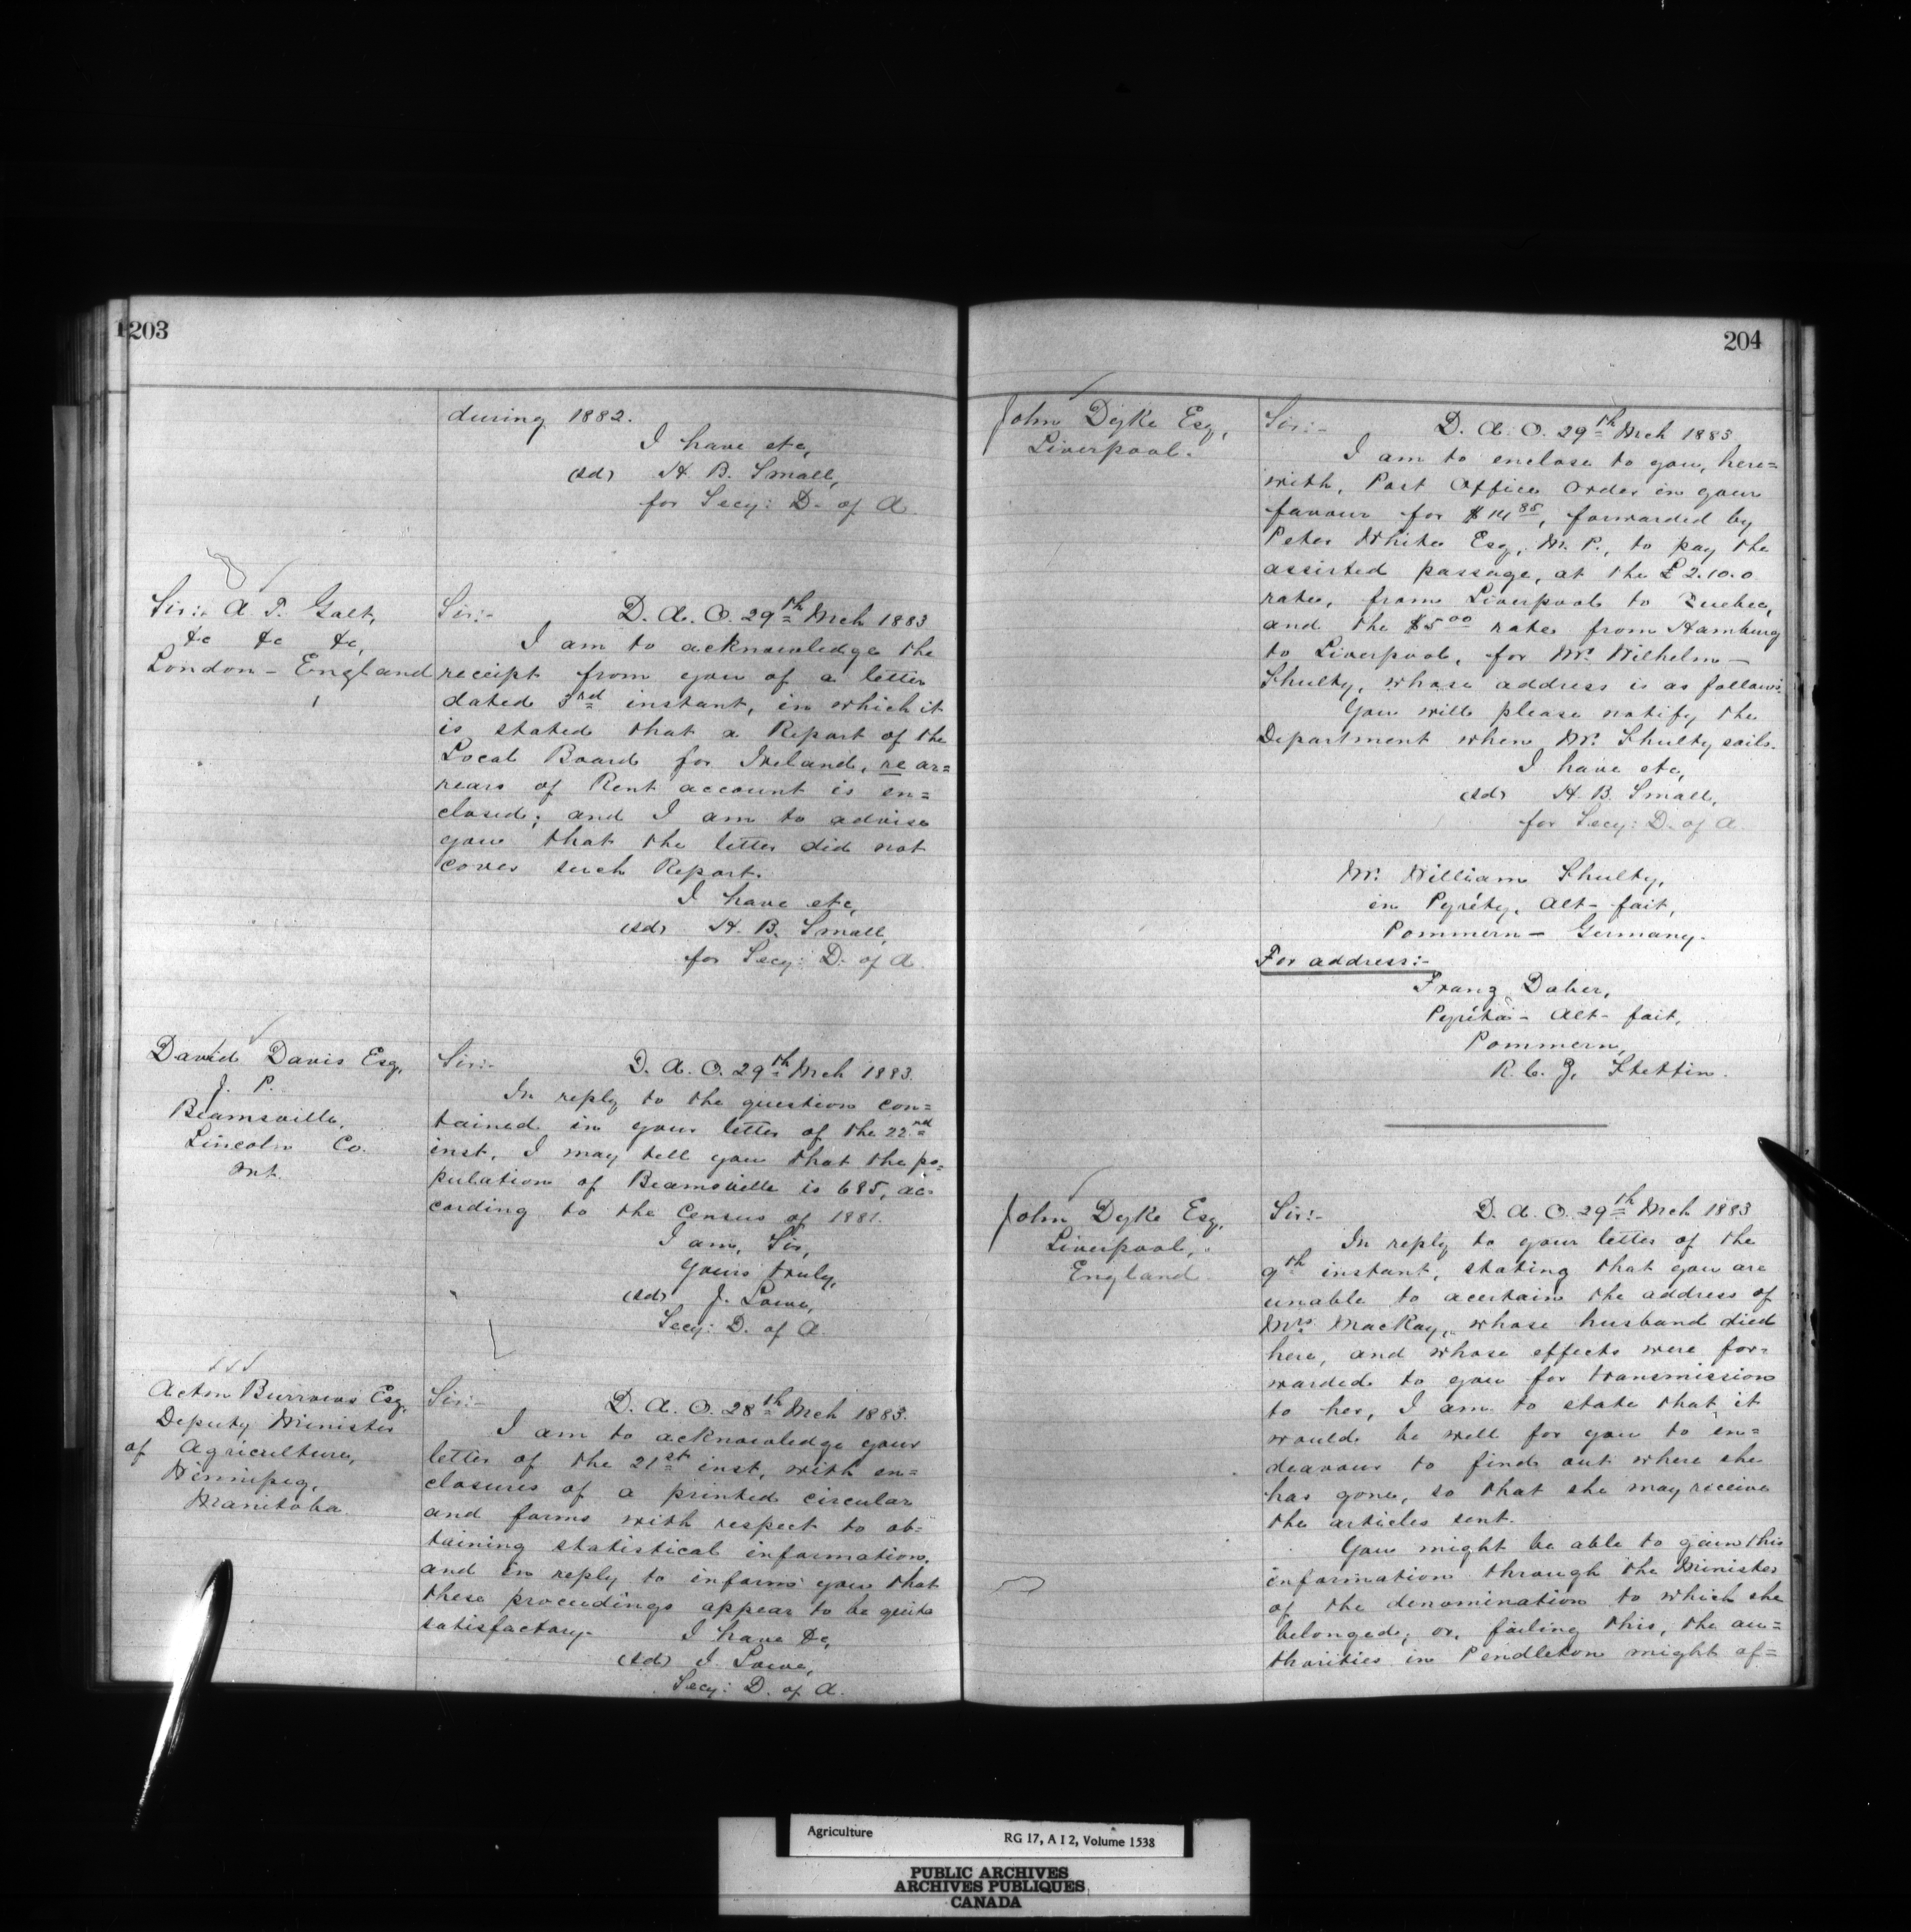 203
during 1882.
I have etc,
(sd) H. B. Small,
for Secy: D. of A.
Sir: A. T. Galt,
&c &c &c,
London - England
Sir:- D. A. O. 29th Mch 1883
I am to acknowledge the
receipt from you of a letter
dated 3rd instant, in which it
is stated that a Report of the
Local Board for Ireland, re ar=
rears of Rent account is en=
closed; and I am to advise
you that the letter did not
cover such Report.
I have etc,
(sd) H. B. Small,
for Secy: D. of A.
David Davis Esq,
J. P.
Beamsville,
Lincoln Co.
Ont.
Sir:- D. A. O. 29th Mch 1883.
In reply to the question con=
tained in your letter of the 22nd
inst. I may tell you that the po=
pulation of Beamsville is 685, ac=
cording to the Census of 1881.
I am, Sir,
Yours truly,
(sd) J. Lowe,
Secy: D. of A.
Acton Burrows Esq,
Deputy Minister
of Agriculture,
Winnipeg,
Manitoba.
Sir:- D. A. O. 28th Mch 1883.
I am to acknowledge your
letter of the 21st inst, with en=
closures of a printed circular
and forms with respect to ob=
taining statistical information,
and in reply to inform you that
these proceedings appear to be quite
satisfactory.
I have &c,
(sd) J. Lowe,
Secy: D. of A.
204
John Dyke Esq,
Liverpool.
Sir:- D. A. O. 29th Mch 1883
I am to enclose to you, here=
with, Post Office Order in your
favour for $14 85, forwarded by
Peter White Esq, M. P., to pay the
assisted passage, at the £2.10.0
rate, from Liverpool to Quebec,
and the $5 00 rate from Hamburg
to Liverpool, for Mr. Wilhelm -
Shulty, whose address is as follows:
You will please notify the
Department when Mr. Shulty sails.
I have etc,
(sd) H. B. Small,
for Secy: D. of A.
Mr. William Shulty,
in Alt- fait,
Pommern - Germany.
For address:-
Franz Daber,
Alt- fait,
Pommern,
R. C. Z, Stettin.
John Dyke Esq,
Liverpool,
England.
Sir:- D. A. O. 29th Mch 1883
In reply to your letter of the
9th instant, stating that you are
unable to acertain the address of
Mrs. MacKay, whose husband died
here, and whose effects were for=
warded to you for transmission
to her, I am to state that it
would be well for you to en=
deavour to find out where she
has gone, so that she may receive
the articles sent.
You might be able to gain this
information through the Minister
of the denomination to which she
belonged; or, failing this, the au=
thorities in Pendleton might af=
Agriculture
RG 17, A I 2, Volume 1538
PUBLIC ARCHIVES
ARCHIVES PUBLIQUES
CANADA